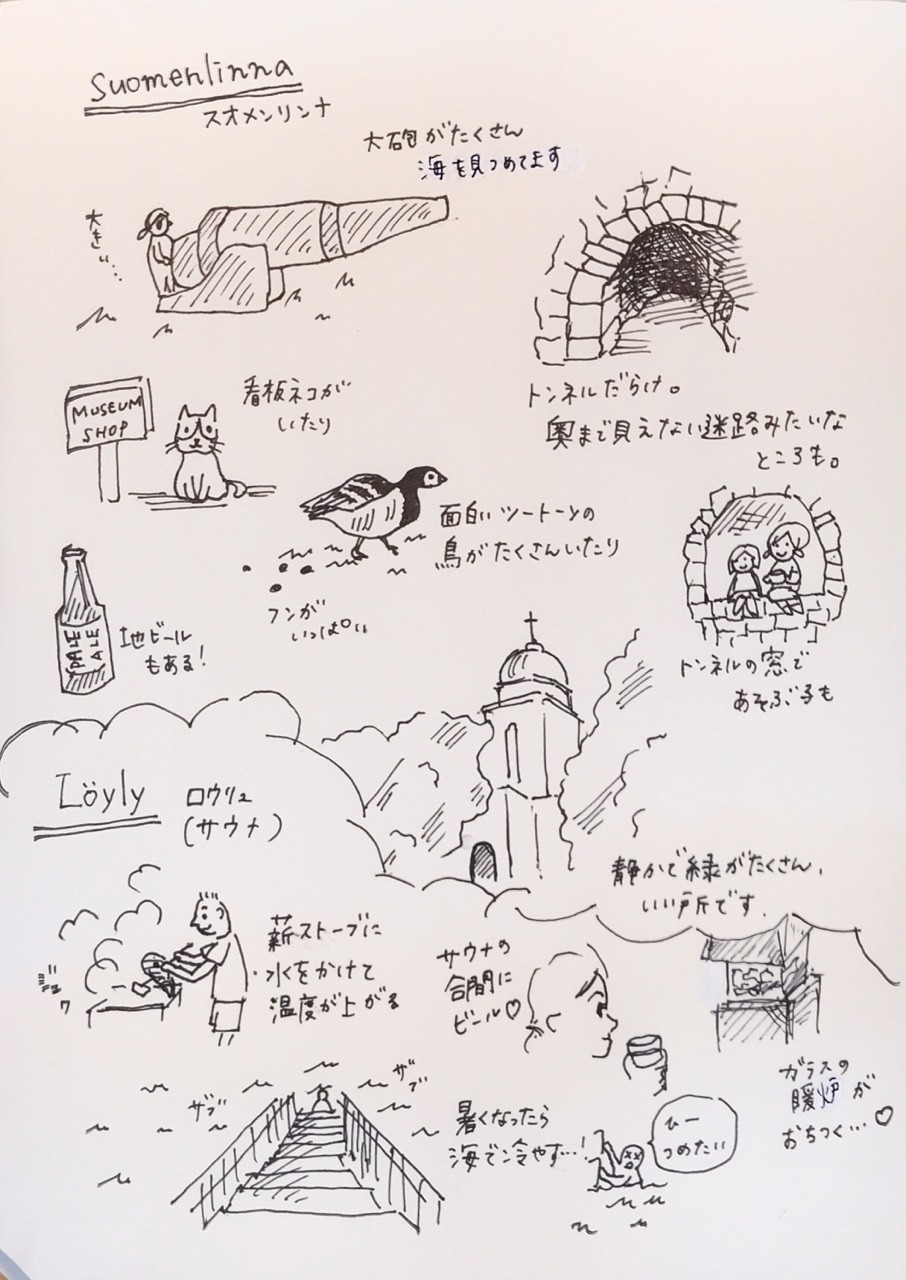 Suomenlinna
スオメンリンナ
大砲がたくさん
海を見つめてます
大きい…
MUSEUM
SHOP
看板ネコが
いたり
トンネルだらけ。
奥まで見えない迷路みたいな
ところも。
面白いツートーンの
鳥がたくさんいたり
フンが
いっぱい
PALE
ALE
地ビール
もある!
トンネルの窓で
あそぶ子も
静かで緑がたくさん、
いい所です.
Löyly
ロウリュ
(サウナ)
薪ストーブに
水をかけて
温度が上がる
サウナの
合間に
ビール♡
ガラスの
暖炉が
おちつく…♡
ザブ
ザブ
暑くなったら
海で冷やす…!
ひー
つめたい